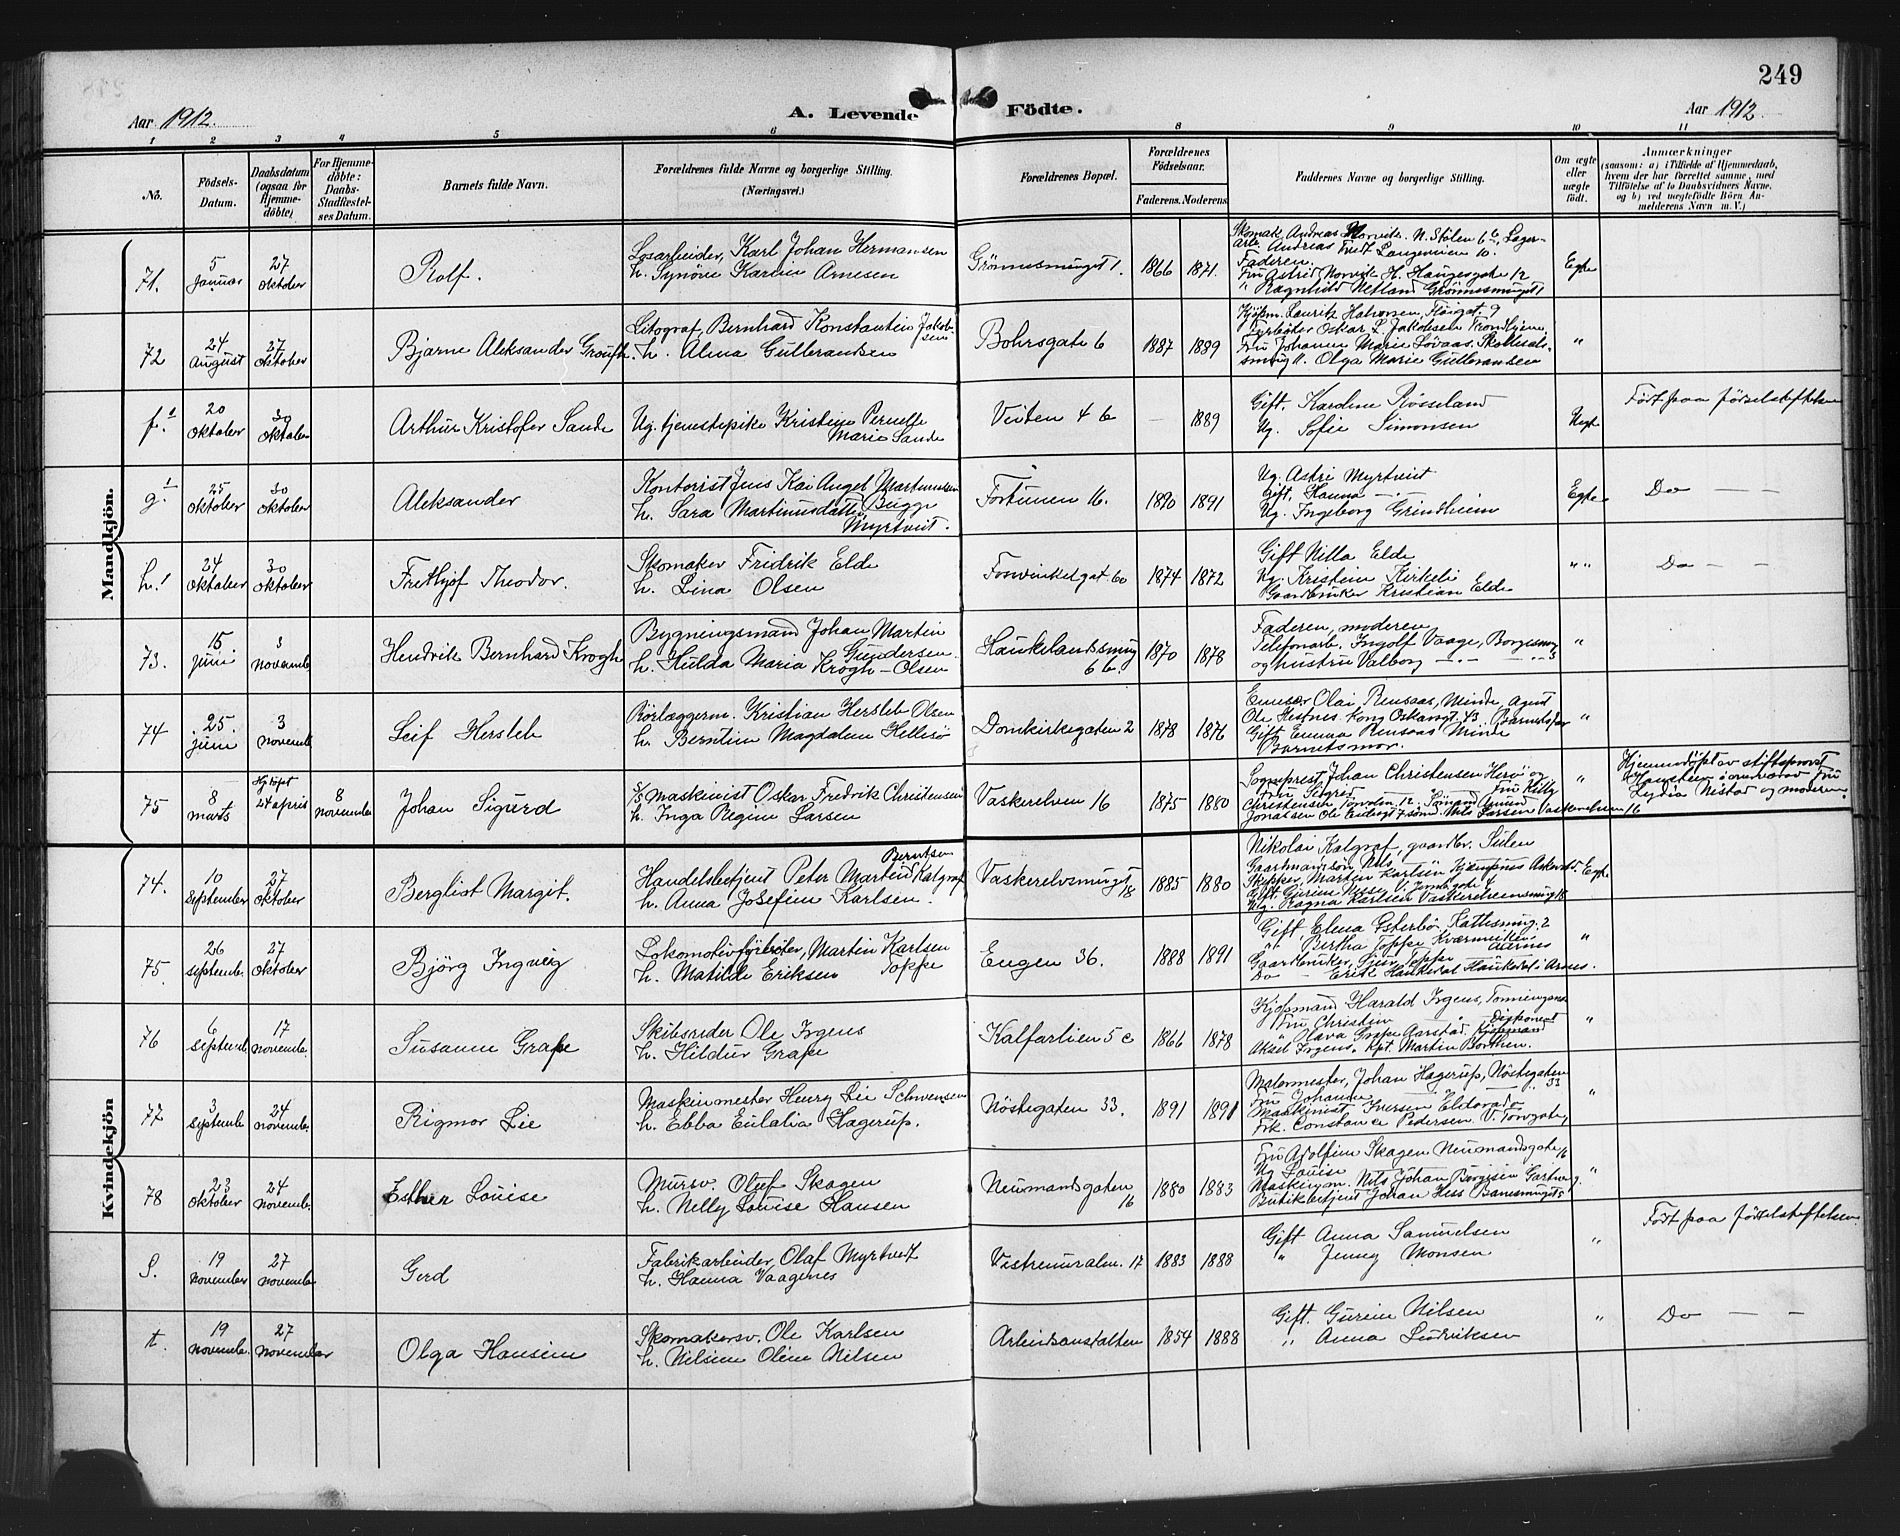 249
Aar 1912.
A. Levende Födte.
Aar 1912.
1 2 3 4 5 6 8 9 10 11
No.
Födsels-Datum.
Daabsdatum (ogsaa for Hjemmedöbte)
For Hjemmedöbte: Daabs-Stadfæstelses Datum.
Barnets fulde Navn.
Forældrenes fulde Navne og borgerlige Stilling. (Næringsvei.)
Forældrenes Bopæl.
Forældrenes Födselsaar.
Faderens. Moderens.
Faddernes Navne og borgerlige Stilling.
Om ægte eller uægte födt.
Anmærkninger
(saasom: a) i Tilfælde af Hjemmedaab, hvem der har forrettet samme, med Tilföielse af to Daabsvidners Navne, og b) ved uægtefödte Börn Anmelderens Navn m. V.)
Mandkjön.
71. 5 Januar 27 Oktober Rolf. Losarbeider, Karl Johan Hermansen
h. Synöve Karine Arnesen Grönnesmuget 1. 1866 1871. Faderen.
Fru Astrid Norvik H. Haugesgate 12
" Ragnhild Netland Grönnesmuget 1 Egte
72 24 August 27 Oktober Bjarne Aleksander Litograf, Bernhard Konstantin Jakobsen
h. Alma Gulbrandsen Bohrsgate 6 1887 1889 Kjøbm. Lauritz Halvorsen,
Fyrböter Oskar L. Jakobsen Trondhjem,
Fru Johanne Marie
Olga Marie Gulbrandsen "
f.1 20 Oktober 30 Oktober Arthur Kristofer Sande Ug. tjenestepike Kristine Pernelle
Marie Sande Veiten 4 b — 1889 Gift. Karoline Røsseland
Ug. Sofie Simonsen Uegte Født paa fødselsstiftelsen
g.1 25 Oktober 30 Oktober Aleksander Kontorist Jens Kai Angel Martinussen
h. Sara Martinusdatter Bugge
Myrtveit. Fortunen 16. 1890 1891 Ug. Astri Myrtveit
Gift, Hanna —
Ug. Ingeborg Grindheim Egte Do — —
h.1 24 Oktober 30 Oktober Frethjof Theodor. Skomaker Fridrik Elde
h. Lina Olsen Fosvinkelgat. 60 1874 1872 Gift Nilla Elde
Ug. Kristine Kirkeli
Gaardbruker Kristian Elde " " Do — —
73. 15 Juni 3 November Hendrik Bernhard Krogh Bygningsmand Johan Martin
Gundersen.
h. Hulda Maria Krogh-Olsen Haukelandssmug
6 b. 1870 1878 Faderen, moderen,
Telefonarb. Ingolf Vaage,
og hustru Valborg —.— "
74 25. Juni 3 Novemb. Leif Hersleb Rörlæggerm. Kristian Hersleb Olsen
h. Berntine Magdalene Hellesö Domkirkegaten 2 1878 1876 Olai Rensaas, Minde agent
Ole Hestnes Kong Oskarsgt. 43. Barnets far
Gift Emma Rensaas Minde
Barnets mor. "
75 8 marts 24 april 8 November Johan Sigurd Maskinist Oskar Fredrik Christensen
h. Inga Regine Larsen Vaskerelven 16 1875 1880 Sogneprest, Johan Christensen Herö og
Fru Sigrid
Nils Larsen Vaskerelven 16 " Hjemmedöpt av stiftsprovst
Lydia Nistad og moderen.
Kvindekjön
74. 10 September 27 Oktober Bergliot Margit. Handelsbetjent Peter Martin Berntsen Kalgraf
h. Anna Josefine Karlsen. Vaskerelvsmuget
18 1885 1880 Nikolai Kalgraf, gaardbr. Sulen
Gaardmandssön Nils
Skipper, Martin Karlsen
Ug. Ragna Karlsen Vaskerelvensmug 18 Egte
75. 26 Septemb. 27 Oktober Björg Ingveig Lokomotivfyrböter, Martin Karlsen
Toppe
h. Matilde Eriksen Engen 36. 1888 1891 Gift, Elena Østerbö,
" Bertha Toppe
Gaardbruker, Toppe
Do — "
76 6 Septemb. 17 Novembe. Susanne Grape Skibsreder Ole Irgens
h. Hildur Grape Kalfarlien 5 c 1866 1878 Kjøpmand Harald Irgens,
Fru Christine
" Olava Grape Aarstad. Kjøpmand
Aksel Irgens. Kpt. Martin Borthen. "
77 3 Septemb. 24 Novembe. Rigmor Lie Maskinmester Henry Lie Schwensen
h. Ebba Eulalia Hagerup. Nöstegaten 33. 1891 1891 Malermester, Johan Hagerup, Nöstegaten
33
Fru Johanne — "
Maskinist Iversen Eldorado
Frk. Constance Pedersen V. Torvgate, "
78 23 Oktober 24 Novembe. Esther Louise Mursv. Oluf Skagen
h. Nelly Louise Hansen Neumandsgaten
16 1880 1883 Fru Adolfine Skagen Neumandsgate 16
Ug Louise
Nils Johan
Butikbetjent Johan Hess "
S. 19 November 27 November Gerd Fabrikarbeider, Olaf Myrtvedt
h. Hanna Vaagenes Vestremuralm. 17 1883 1888 Gift Anna Samuelsen
" Jenny Monsen " Født paa fødselsstiftelsen
t. 19 Novembe. 27 November Olga Hansine Skomakersv. Ole Karlsen
h. Nilsine Oline Nilsen Arbeidsanstalten 1854 1888 Gift. Gurine Nilsen
" Anna Ludviksen " Do — —